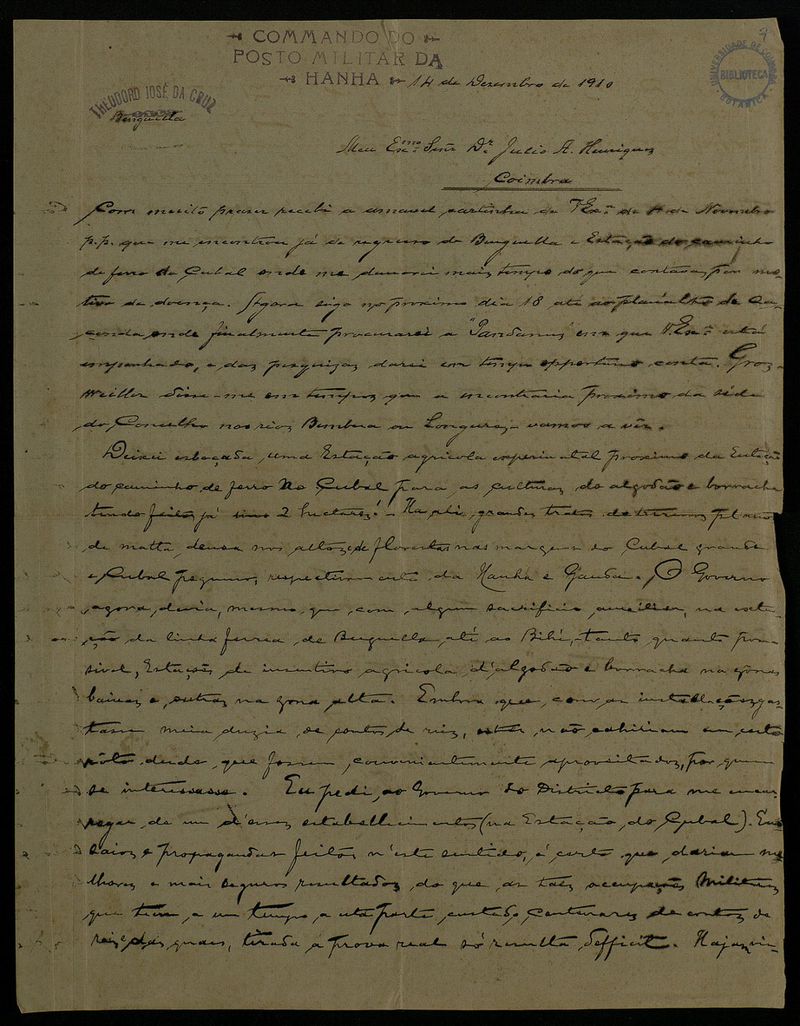 COMMANDO DO
POSTO MILITAR DA
HANHA
14 de Dezembro de 1910
THEODORO JOSÉ DA CRUZ
Benguella
UNIVERSIDADE DE COIMBRA
BIBLIOTECA
BOTANICA
Meu Exmo. Senr. Dr. Julio A. Henriques
Coimbra
Com muito prazer recebi a amavel cartinha de V. Exa. de de Novembro
p.p. que me encontrou já de regresso de Benguella e Estação do caminho
de ferro do Cubal onde me demorei mais tempo do que contava por mo-
tivo de doença. Agora sigo no proximo dia 18 até ao planalto de Ca-
conda, onde finalmente procurarei a "Pandanus" em que V. Exa. está
empenhado, e das pesquizas darei em tempo opportuno conta. Gros-
weiller disse-me em tempos que a encontraria proximo da séde
do Concelho nos rios ou vamos a vêr.
Deixei esboçada uma Estação agricola experimental proximo da Estação
do caminho de ferro no Cubal para as culturas do algodão e borracha
tendo feitos já 2 hectares. Ha ali grandes tratos de terrenos planos
de matta densa nos altos e de florestas nas margens do Cubal grande
e Cubal pequeno, respectivamente da Hanha e Ganda. O Governo
agora devia, mesmo que com algum sacrificio, auxiliar, na exten-
ção da linha ferrea de Benguella até ao Bihé, tanto quanto pos-
sivel, Estações de incentivo agricola d'algodão e borracha na zona
baixa e outras na zona alta. Embora que com as installações gas-
tasse meia duzia de contos de reis, não
desde que fossem convenientemente aproveitados, por quem
se interessasse. Eu pedi ao Governo do Districto para me encar-
regar de um d'esses estabellecimentos (na Estação do Cubal). En-
saios e propagandas feitos n'este sentido, é certo que dariam me-
lhores e mais seguros resultados do que as taes occupações Militares
que teem a um tempo a esta parte custado centenares de contos de
reis e das quaes, tirada a prova real só resulta defficit. Haja